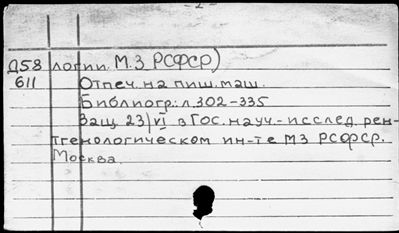 -2-
Д58 логии. М.З РСФСР)
611 Отпеч. на пиш. маш.
Библиогр: л. 302-335
Защ 23/VI в Гос. науч.-исслед. рен-
тгенологическом ин-те МЗ РСФСР.
Москва.